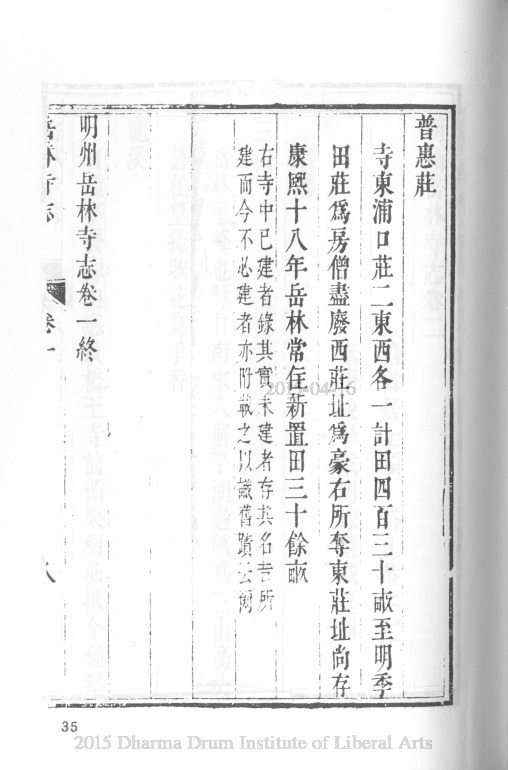 普惠莊
寺東浦口莊二東西各一計田四百三十畝至明季
田莊爲房僧盡廢西莊址爲豪右所奪東莊址尚存
康熙十八年岳林常住新置田三十餘畝
右寺中已建者錄其實未建者存其名昔所
建而今不必建者亦附載之以識舊蹟云爾
明州岳林寺志卷一終
岳林寺志
卷一
八
35
2015 Dharma Drum Institute of Liberal Arts